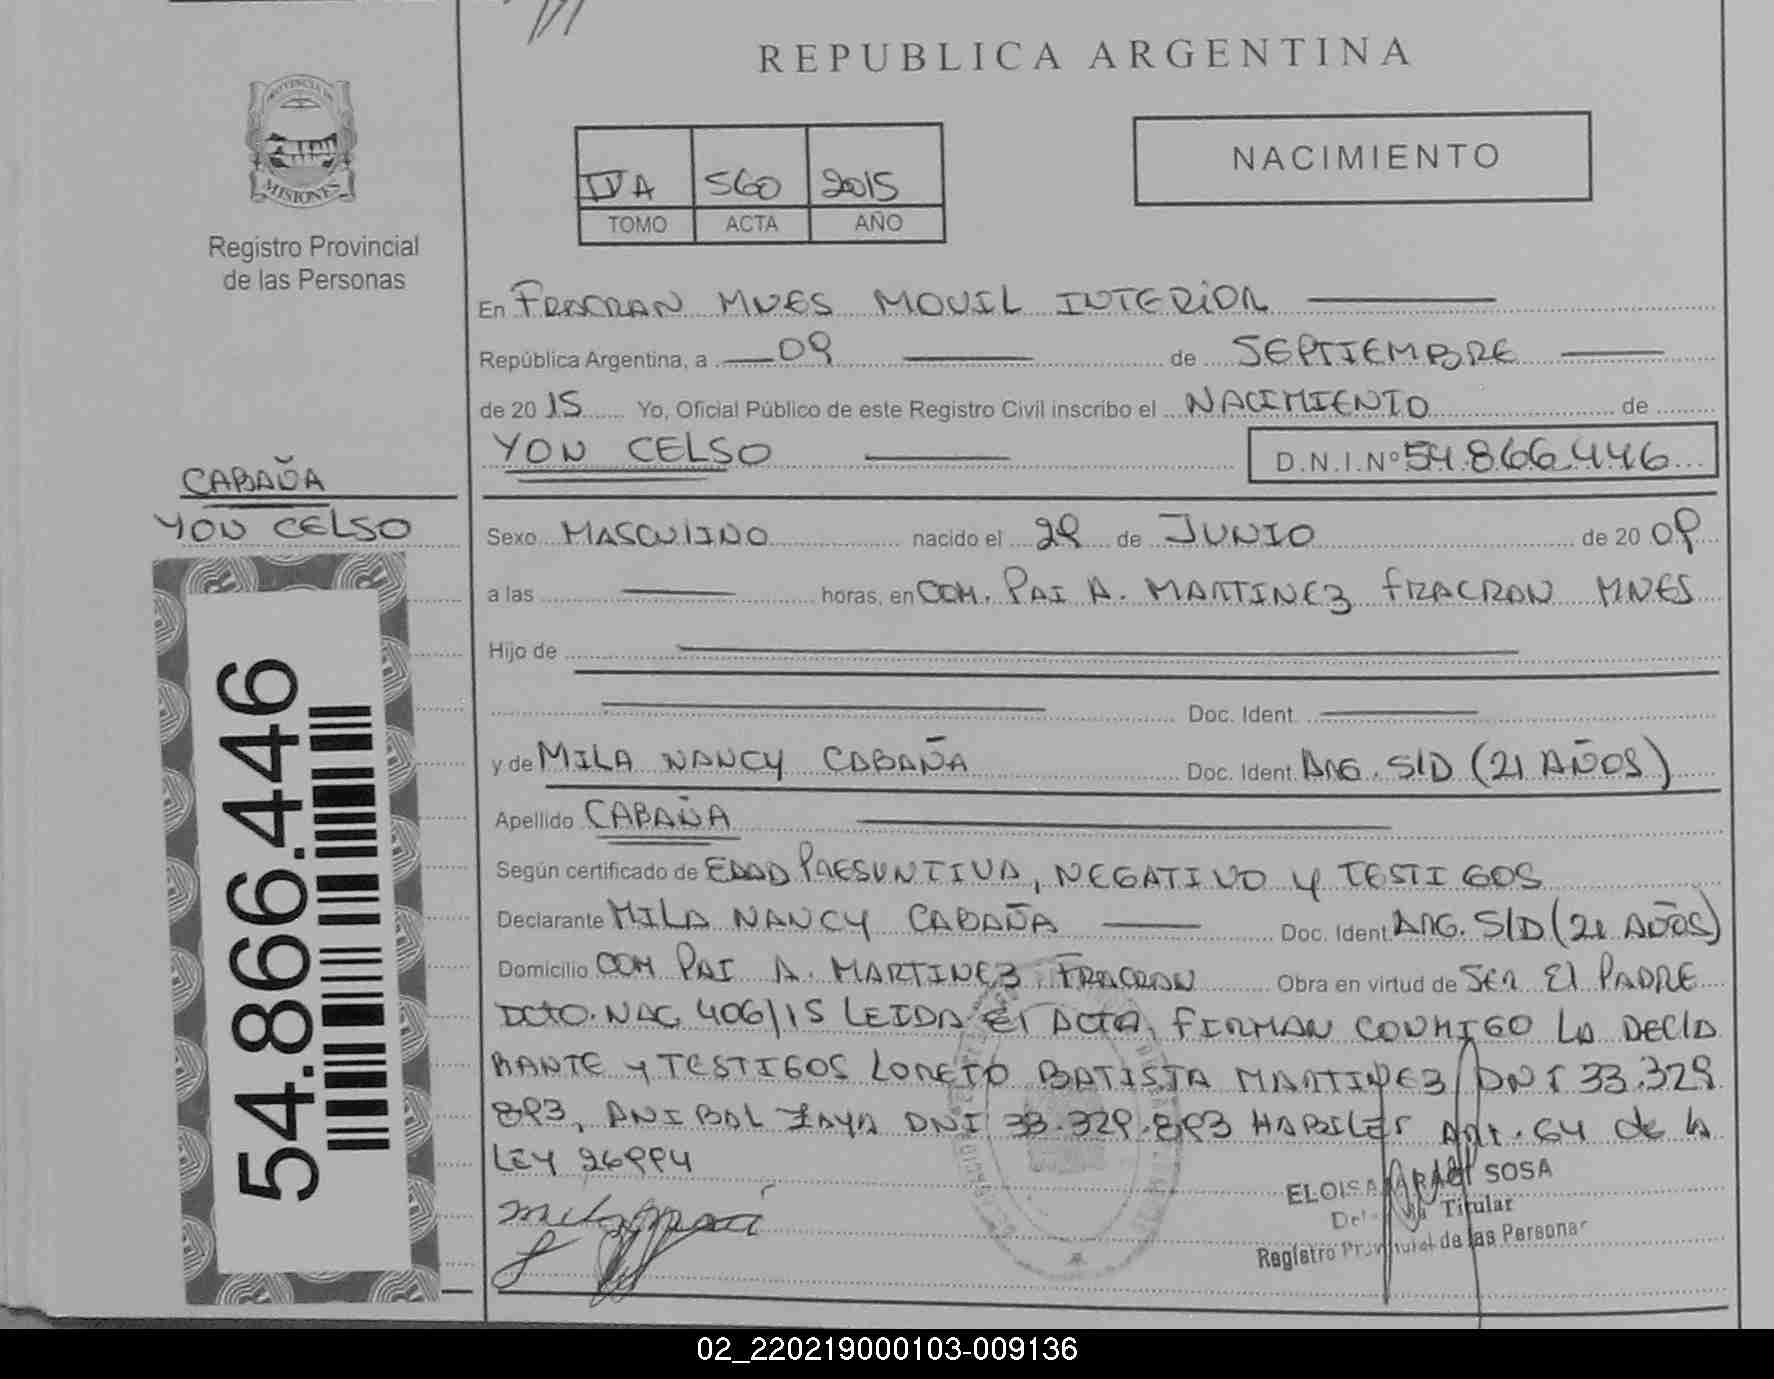 REPUBLICA ARGENTINA
NACIMIENTO
PROVINCIA DE
MISIONES
Registro Provincial
de las Personas
IVA 560 2015
TOMO ACTA AÑO
En FRACRAN MNES MOVIL INTERIOR
República Argentina, a 09 de SEPTIEMBRE
de 20 15 Yo, Oficial Público de este Registro Civil inscribo el NACIMIENTO de
YON CELSO D.N.I.Nº 54.866.446
CABAÑA
YON CELSO
Sexo MASCULINO nacido el 29 de JUNIO de 20 09
a las horas, en COM. PAI A. MARTINEZ FRACRAN MNES
Hijo de
Doc. Ident.
y de MILA NANCY CABAÑA Doc. Ident. ARG. S/D (21 AÑOS)
Apellido CABAÑA
Según certificado de EDAD PRESUNTIVA, NEGATIVO Y TESTIGOS
Declarante MILA NANCY CABAÑA Doc. Ident. ARG. S/D (21 AÑOS)
Domicilio COM PAI A. MARTINEZ FRACRAN Obra en virtud de SER El PADRE
DCTO. NAC 406/15 LEIDA El ACTA, FIRMAN CONMIGO LA DECLA
RANTE Y TESTIGOS LORETO BATISTA MARTINEZ DNI 33.329
893, ANIBAL ZAYA DNI 33.329.893 HABILES ART. 64 de la
LEY 26994
ELOISA SOSA
Titular
Registro Provincial de las Personas
54.866.446
02_220219000103-009136